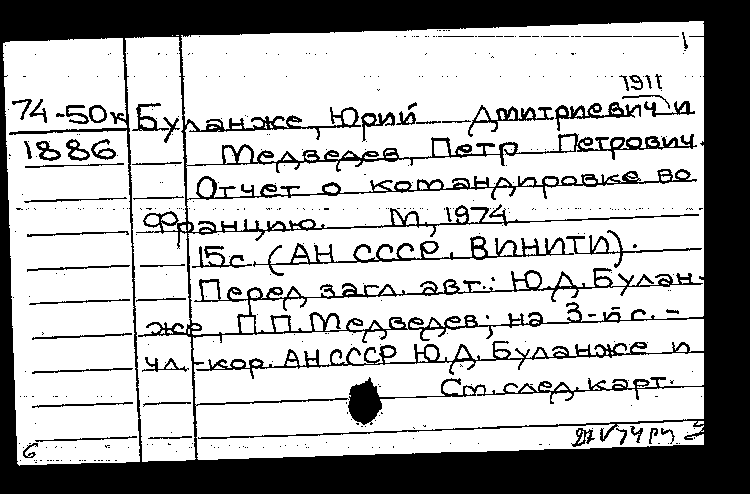 1
1911
74-50к Буланже, Юрий Дмитриевич и
1886 Медведев, Петр Петрович.
Отчет о командировке во
Францию. М., 1974.
15с. (АН СССР. ВИНИТИ).
Перед загл. авт.: Ю.Д.Булан-
же, П.П.Медведев; на 3-й с. -
чл.-кор. АН СССР Ю.Д. Буланже и
См. след. карт.
6